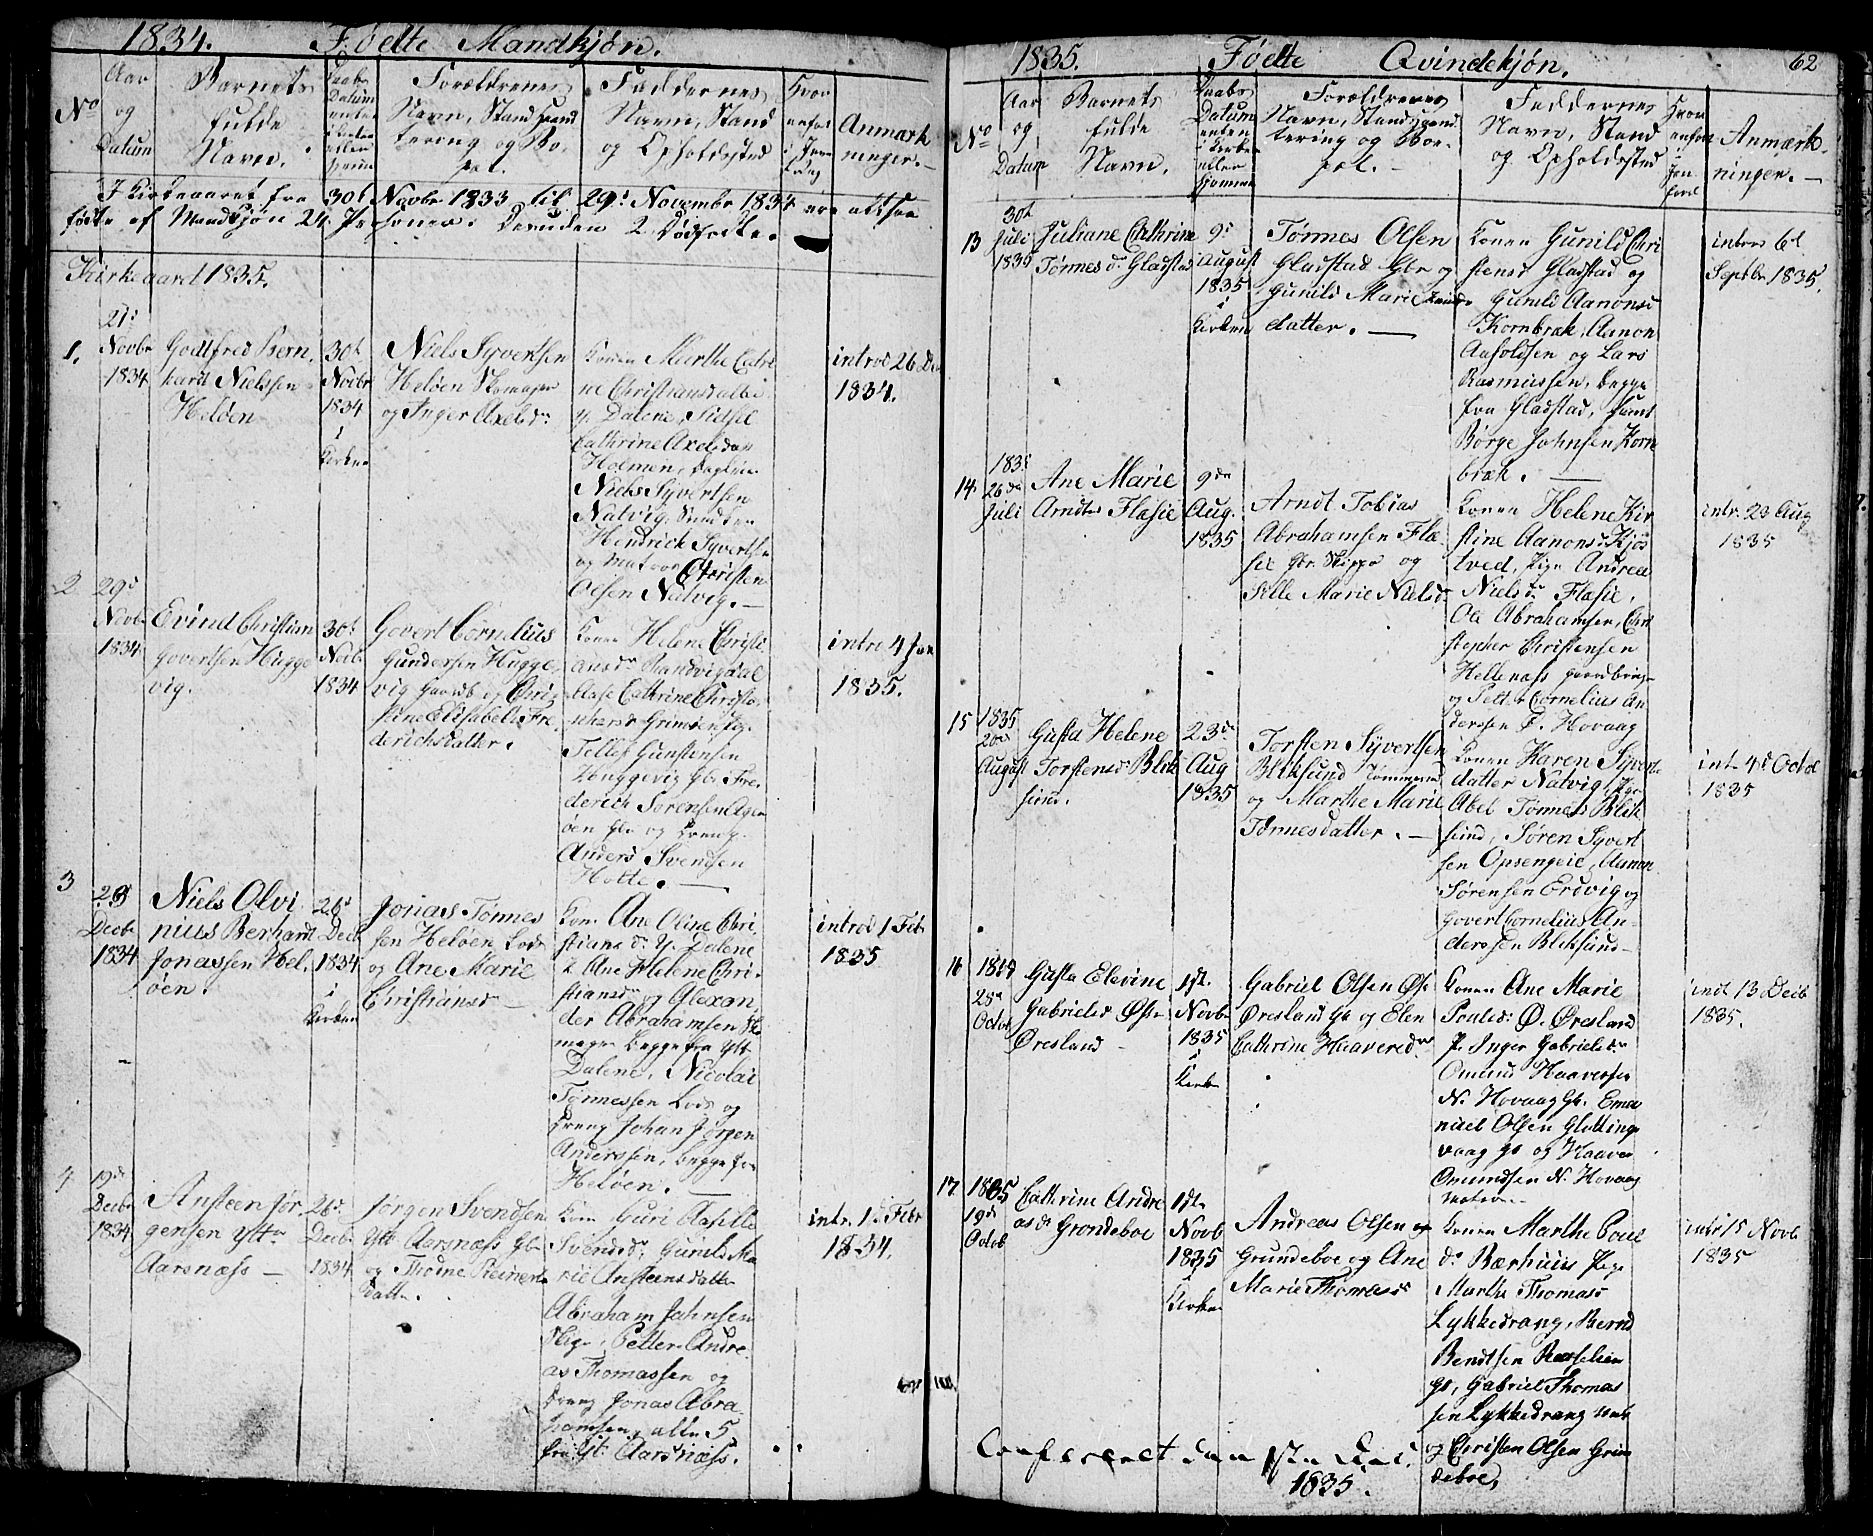 1834. Fødte Mandkjøn.
No
Aar
og
Datum
Barnets
fulde
Navn.
Daabs
Datum
enten
i Kirken
eller
hjemme
Forældrenes
Navn, Stand Haand
tering og Bo-
pæl.
Faddernes
Navn, Stand
og Opholdssted
Anmærk
ninger.
I Kirkeaaret fra 30t Novbr 1833 til 29d November 1834 ere altsaa
fødte af Mandkjøn 24 Personer. Desuden 2 Dødfødte.
Kirkeaaret 1835.
1.
21d
Novbr
1834
Godtfred Bern-
hardt Nielssen
Heløen
30t
Novbr
1834
i
Kirken
Niels Syvertsen
Heløen Skomager
og Inger Axelsdr
Konen Marthe Cathri
ne Christiansdatter
Y. Dalene, Sidsel
Cathrine Axelsdatter
Holmen,
Niels Syvertsen
Natvig,
Hendrich Syvertsen
og Matros Christen
Olsen Natvig.
introd 26 De
1834.
2
29d
Novbr
1834
Evind Christian
Govertsen Hugge
vig.
30t
Novbr
1834
Govert Cornelius
Gundersen Hugge
vig Gaardb og Chri
stine Elisabeth Fre
derichsdatter.
Konen Helene Christi
ansdr Strandvigdal
Cathrine Christo-
phersdr Grimsøen
Tellef Gunstensen
Huggevig Gbr Fre-
derich Sørensen Ager
øen og Dreng
Anders Svendsen
Hotte.
intro 4 Jan
1835.
3
23
Decbr
1834
Niels Olvi
nius Berhardt
Jonassen Hel-
øen.
26d
Decb
1834
i
Kirken
Jonas Tønnes
sen Heløen Lods
og Ane Marie
Christiansdr
Kone Ane Oline Chri
stiansdr Y. Dalene
2 Ane Helene Chri-
stiansdr og Alexan
der Abrahamsen Sko
mager begge fra Ytt
Dalene, Nicolai
Tønnessen Lods og
Dreng Johan Jørgen
Anderssen, begge fra
Heløen.
introd 1 Feb
1835
4
19d
Decbr
1834
Ansteen Jør
gensen Yttr
Aarsnæss
26d
Decbr
1834
Jørgen Svendsen
Ytt Aarsnæss Gbr
og Thorne Reinert
datter.
Kone Guri Aasille
Svendsdr, Gunild Ma
rie Ansteensdatter
Abraham Jahnsen
Petter Andre
as Thomassen og
Dreng Jonas Abra
hamsen, alle 5
fra Yt. Aarsnæss.
intr. 1d Febr
1834.
1835. Fødte Qvindekjøn. 62
No
Aar
og
Datum
Barnets
fulde
Navn.
Daabs
Datum
enten
i Kirken
eller
hjemme
Forældrenes
Navn, Stand, Haand
tering og Bo-
pæl.
Faddernes
Navn, Stand
og Opholdssted
Anmærk-
ningen.
13
30t
Juli
1835
Juliane Cathrine
Tønnesdr Gladstad
9d
August
1835
i
Kirken
Tønnes Olsen
Gladstad Gbr og
Gunild Marie
datter.
Konen Gunild Chri
stensdr Gladstad og
Gunild Aanonsdr
Kornbræk, Aanon
Aasoldsen og Lars
Rasmussen, begge
fra Gladstad, samt
Børge Johnsen Korn
bræk.
introd 6t
Septbr 1835.
14
1835
26de
Juli
Ane Marie
Arndtsdr Flæsie
9de
Aug.
1835
Arndt Tobias
Abrahamsen Flæ
sie Gbr Skipper og
Sille Marie Nielsdr
Konen Helene Kir
stine Aanonsdr Kjøs
tved, Pige Andrea
Nielsdr Flæsie,
Ole Abrahamsen, Chri
stopher Christensen
Hellenæss Gaardbruger
og Petter Cornelius An
derssen Ø. Hovaag
intr. 23 Aug
1835
15
1835
20de
August
Gusta Helene
Torstensdr Blik
sund.
23de
Aug
1835
Torsten Syvertsen
Bliksund Tømmermd
og Marthe Marie
Tønnesdatter.
Konen Karen Syverts
datter Natvig, Pige
Abel Tønnesdr Blik
sund, Søren Syvert
sen Opsengeie, Aanon
Sørensen Erdvig og
Govert Cornelius An-
derssen Bliksund
intr 4d Octbr
1835
16
1835
25d
Octob
Gusta Elevine
Gabrielsdr Østr
Øresland
1st.
Novbr
1835
i
Kirken
Gabriel Olsen Øs
Øresland Gb og Elen
Cathrine Haaversdr
Konen Ane Marie
Poulsdr Ø. Øresland
P. Inger Gabrielsdr
Omund Haaversen
N. Hovaag Gb. Ema
nuel Olsen Glatting
vaag gb og Haaver
Omundsen N. Hovaag
Matros
indt 13 Decb
1835.
17
1835
19d
Octob
Cathrine Andre
asdr Grondeboe
1ste
Novb
1835
i
Kirken
Andreas Olsen
Grundeboe og Ane
Marie Thomasdr
Konen Marthe Poul
dr Bærhuus Pige
Marthe Thomasdr
Lykkedrang, Bernd
Bendtsen Rosselien
Gb, Gabriel Thomas
sen Lykkedrang
og Christen Olsen Grun
deboe,
intr 15 Novb
1835
Confereret den 1ste
1835.